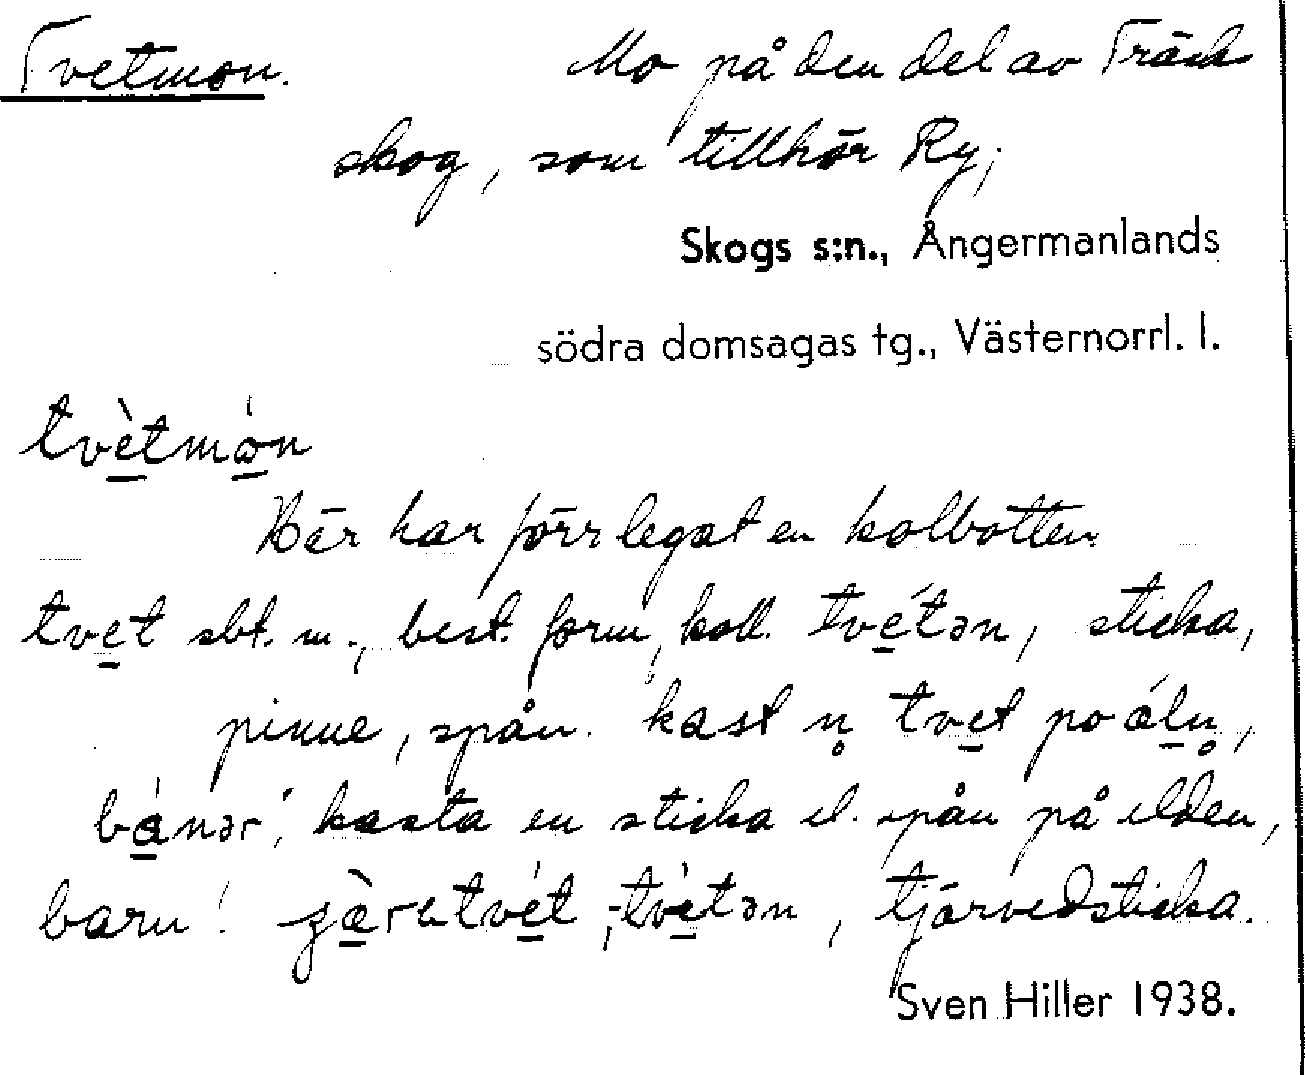 Tvetmon. Mo på den del av Träsk
skog, som tillhör Ry;
Skogs s:n., Ångermanlands
södra domsagas tg., Västernorrl. l.
tvètmón
Där har förr legat en kolbotten.
tvet sbt. m., best. form, koll. tvétən, sticka,
pinne, spån. kast n̥ tvet po áln̥,
bánər', kasta en sticka el. spån på elden,
barn! tvét, -tvétən, tjärvedsticka.
Sven Hiller 1938.